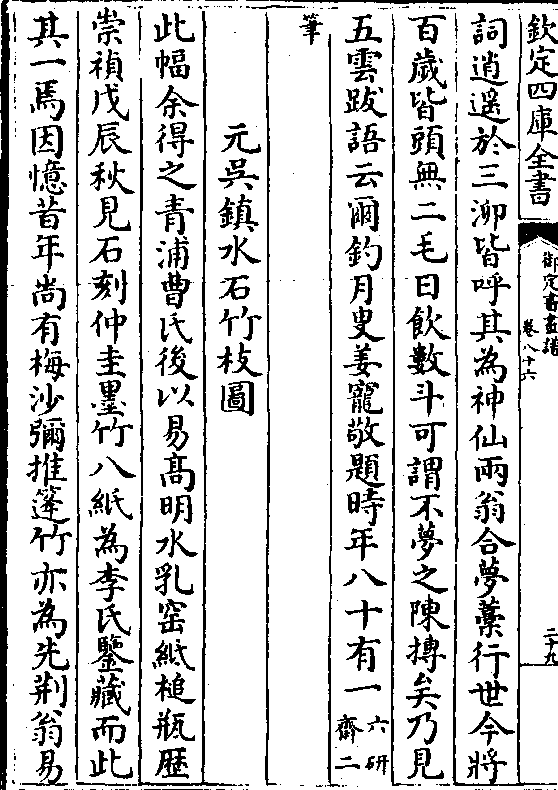 欽定四庫全書
御定書畫譜
卷八十六
二十九
詞逍遥於三泖皆呼其為神仙兩翁合夢藁行世今將
百歲皆頭無二毛日飲數斗可謂不夢之陳摶矣乃見
五雲跋語云爾釣月叟姜寵敬題時年八十有一六研齋二
筆
元吳鎮水石竹枝圖
此幅余得之青浦曹氏後以易高明水乳窑紙槌瓶歴
崇禎戊辰秋見石刻仲圭墨竹八紙為李氏鑒藏而此
其一焉因憶昔年尚有梅沙彌推篷竹亦為先荆翁易